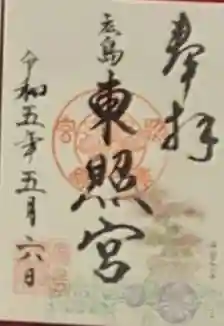 奉拝
広島
東照宮
令和五年五月六日